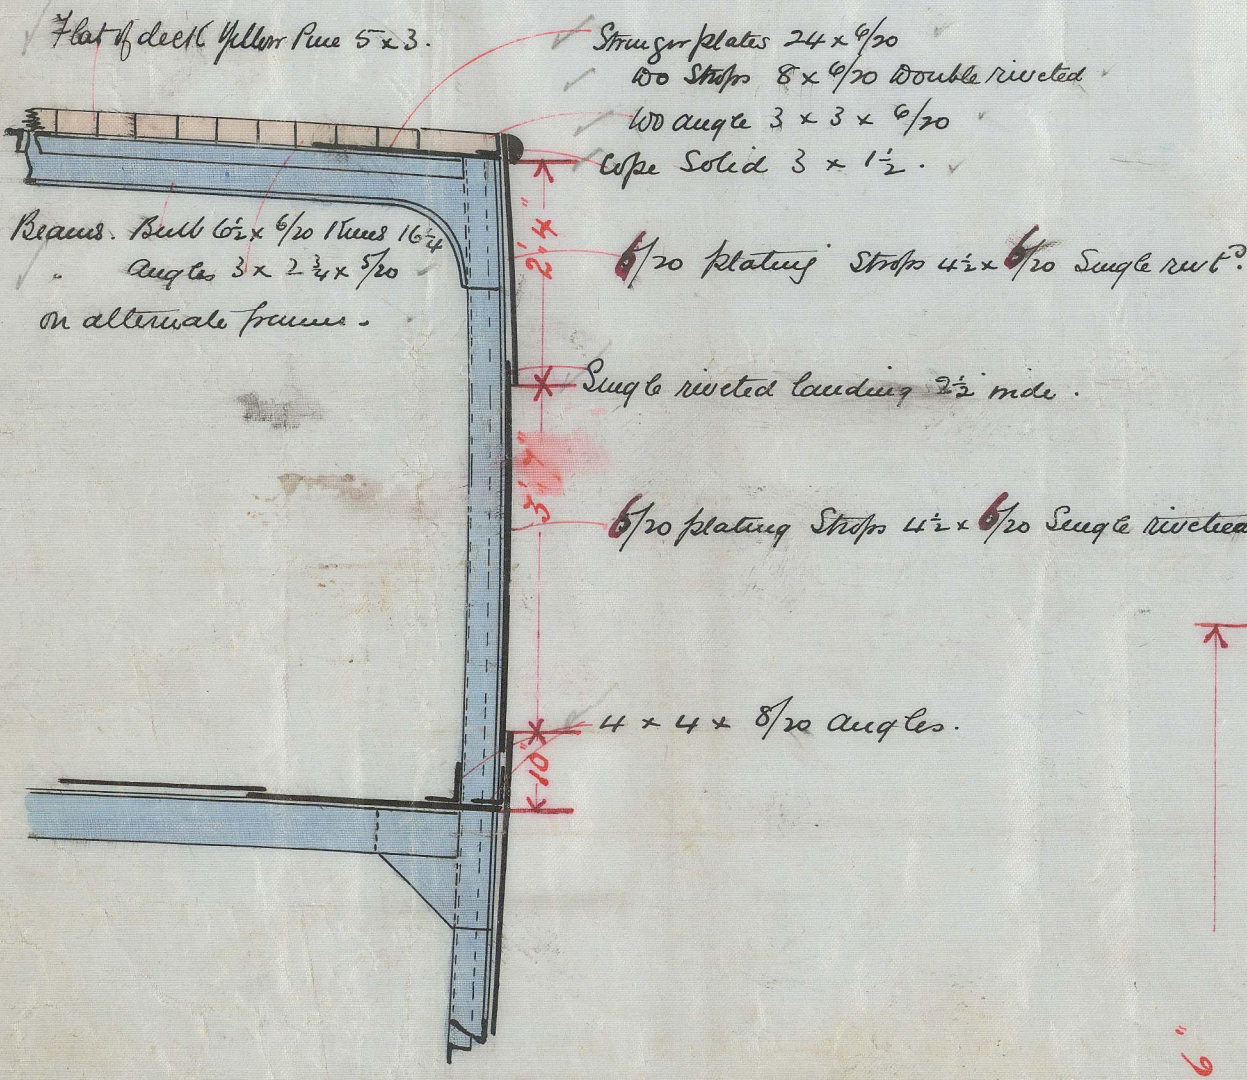 Flat of deck Yellow Pine 5 x 3.
Stringer plates 24 x 6/20
DO Strops 8 x 6/20 Double riveted
DO angle 3 x 3 x 6/20
Cope Solid 3 x 1½.
Beams. Bulb 6½ x 6/20 Knees 16¼
" Angles 3 x 2¾ x 5/20
on alternate frames.
2'.4"
6/20 plating Strops 4½ x 6/20 Single rivtd.
Single riveted landing 2½ wide.
3'.7"
6/20 plating Strops 4½ x 6/20 Single riveted
4 x 4 x 8/20 Angles.
10"
9"